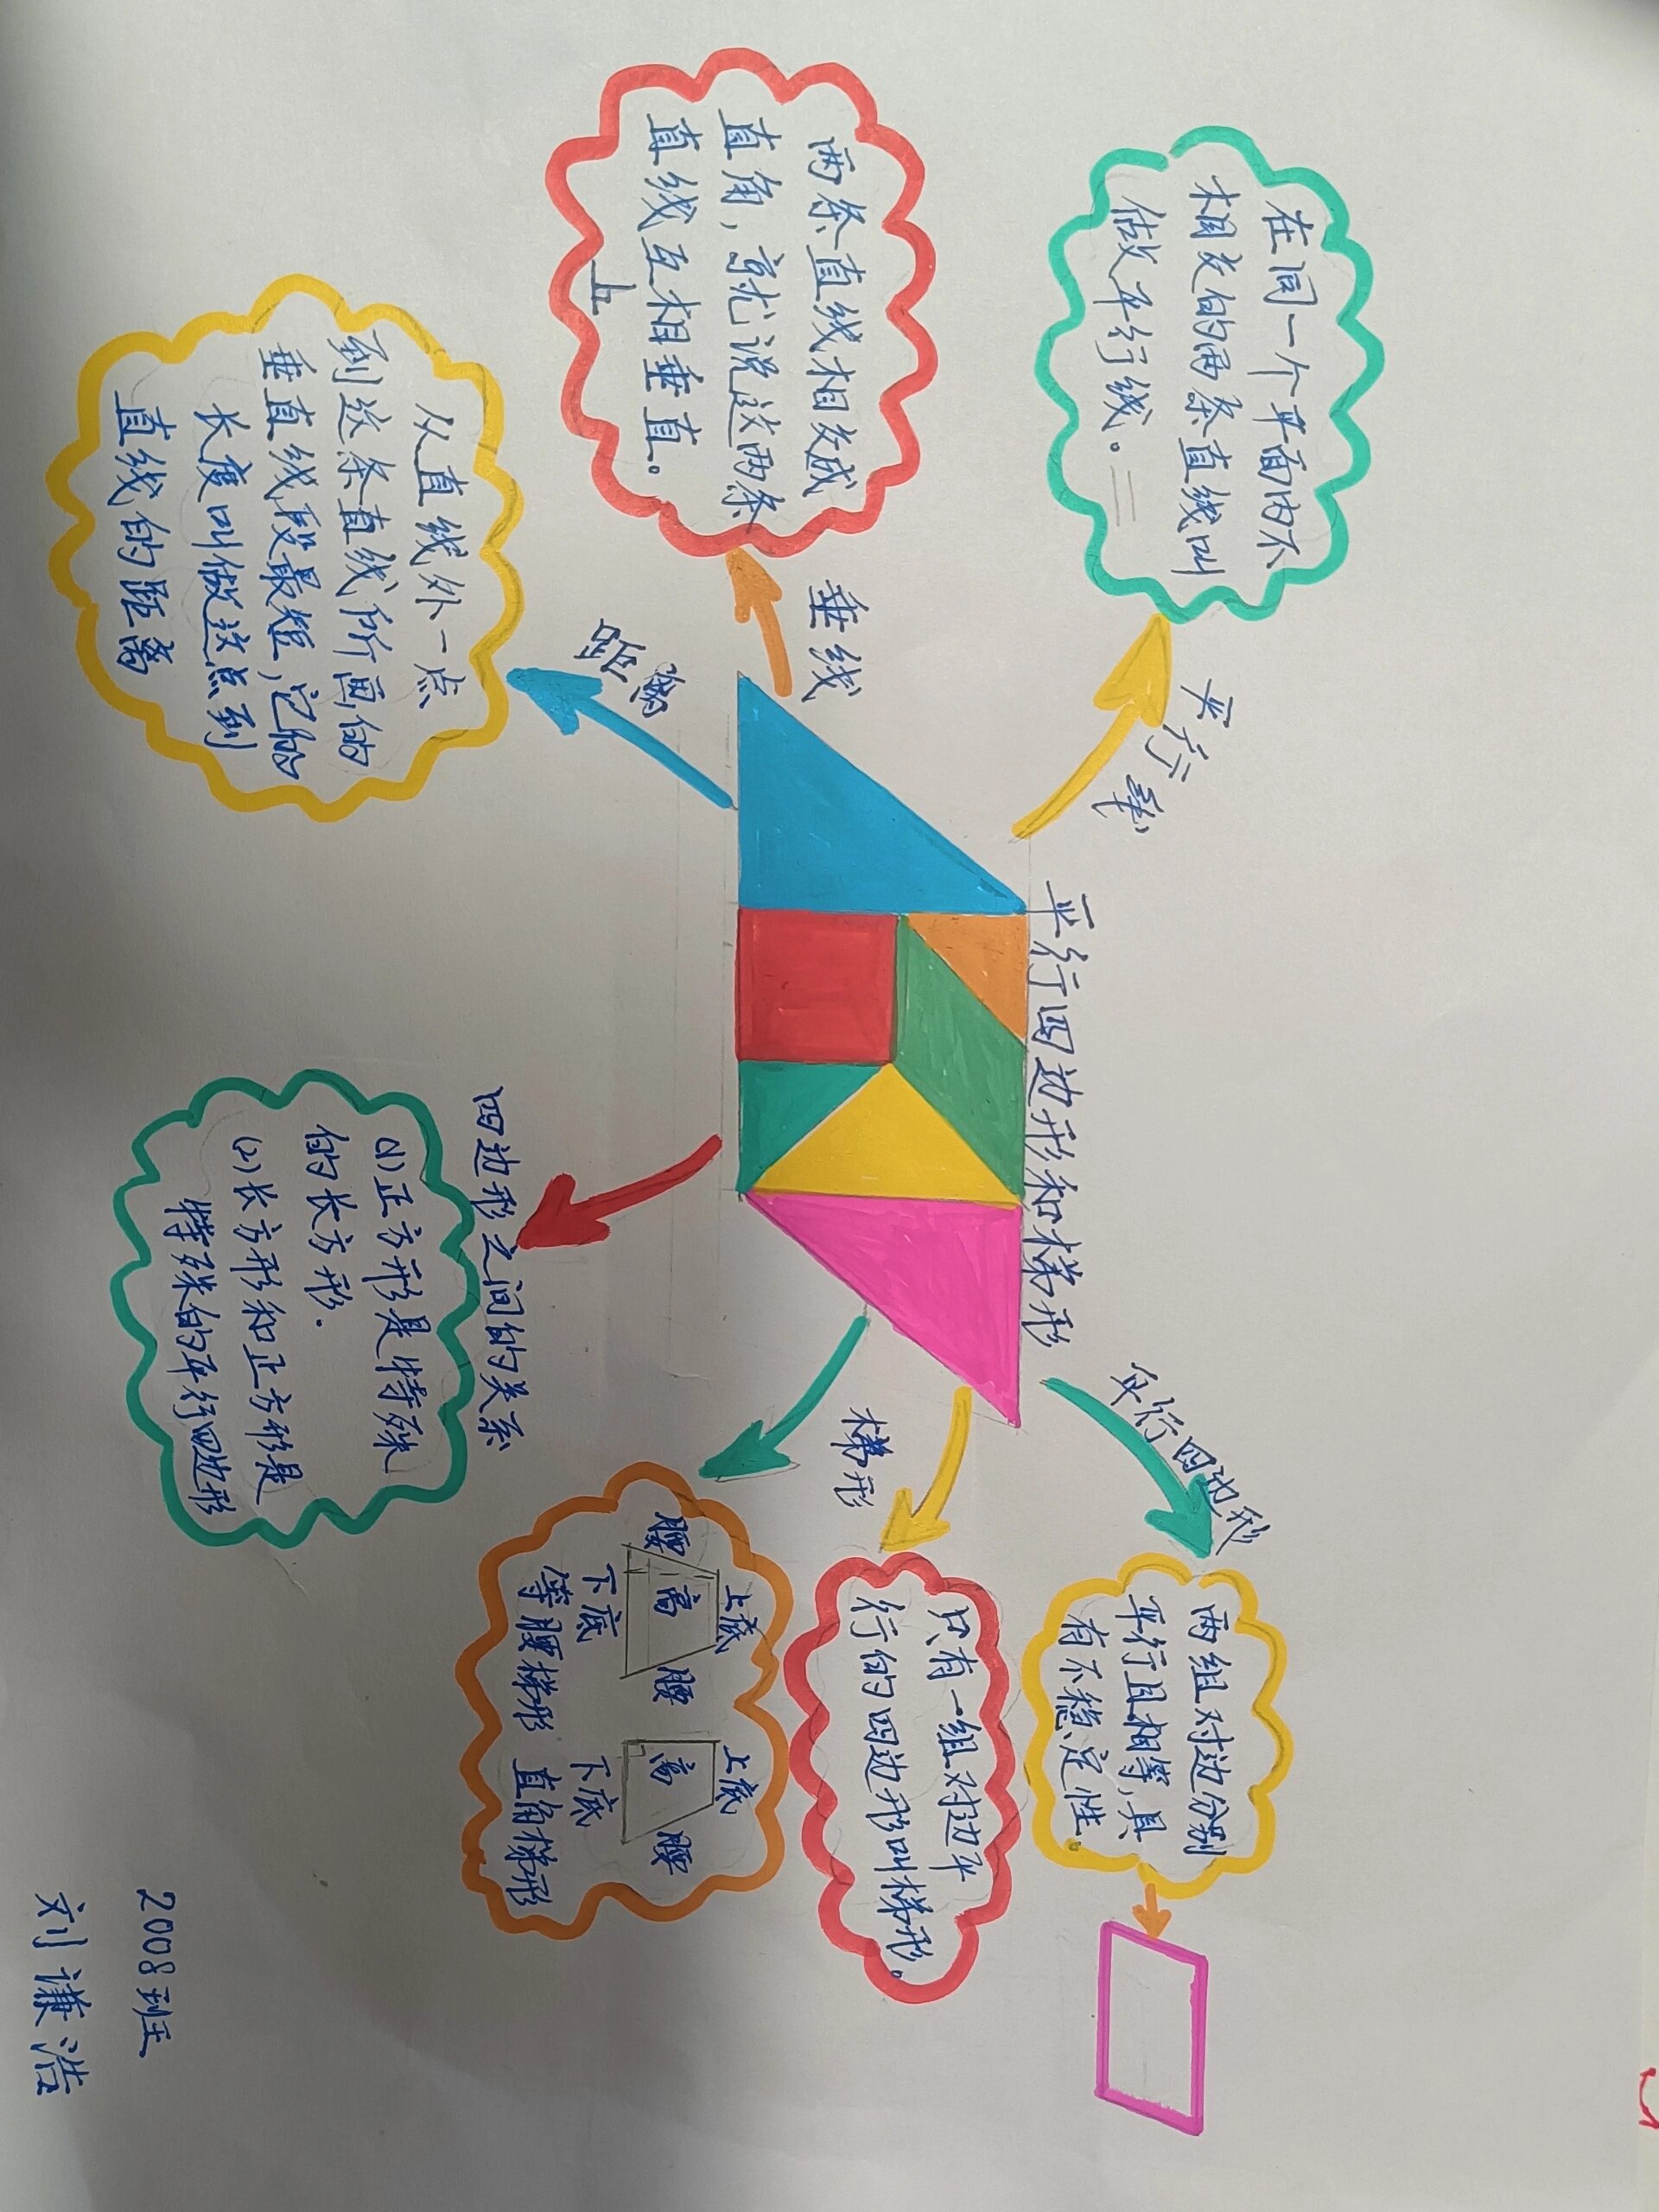 平行四边形和梯形
平行线
在同一个平面内不
相交的两条直线叫
做平行线。
垂线
两条直线相交成
直角，就说这两条
直线互相垂直。
距离
从直线外一点
到这条直线所画的
垂直线段最短，它的
长度叫做这点到
直线的距离
平行四边形
两组对边分别
平行且相等，具
有不稳定性。
梯形
只有一组对边平
行的四边形叫梯形。
上底
腰 高 腰
下底
等腰梯形
上底
高 腰
下底
直角梯形
四边形之间的关系
(1)正方形是特殊
的长方形.
(2)长方形和正方形是
特殊的平行四边形
2008班
刘谦浩